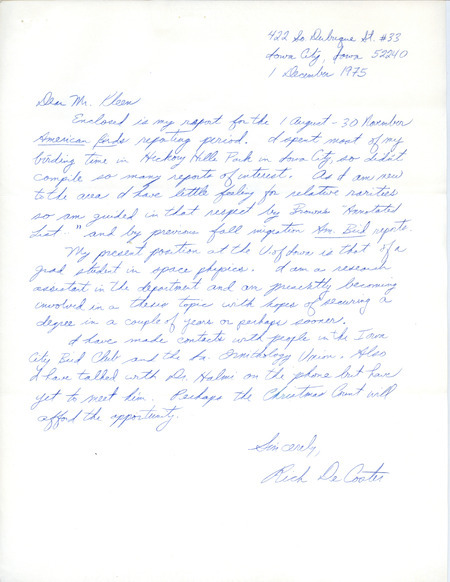 422 So Dubuque St. #33
Iowa City, Iowa 52240
1 December 1975
Dear Mr. Kleen
Enclosed is my report for the 1 August - 30 November
American Birds reporting period. I spent most of my
birding time in Hickory Hills Park in Iowa City, so didn't
compile so many reports of interest. As I am new
to the area I have little feeling for relative rarities
so am guided in that respect by Brown's "Annotated
List" and by previous fall migration Am. Bird reports.
My present position at the U of Iowa is that of a
grad student in space physics. I am a research
assistant in the department and am presently becoming
involved in a thesis topic with hopes of securing a
degree in a couple of years or perhaps sooner.
I have made contacts with people in the Iowa
City Bird Club and the Ia. Ornithology Union. Also
I have talked with Dr. Halmi on the phone but have
yet to meet him. Perhaps the Christmas Count will
afford the opportunity.
Sincerely,
Rich De Coster